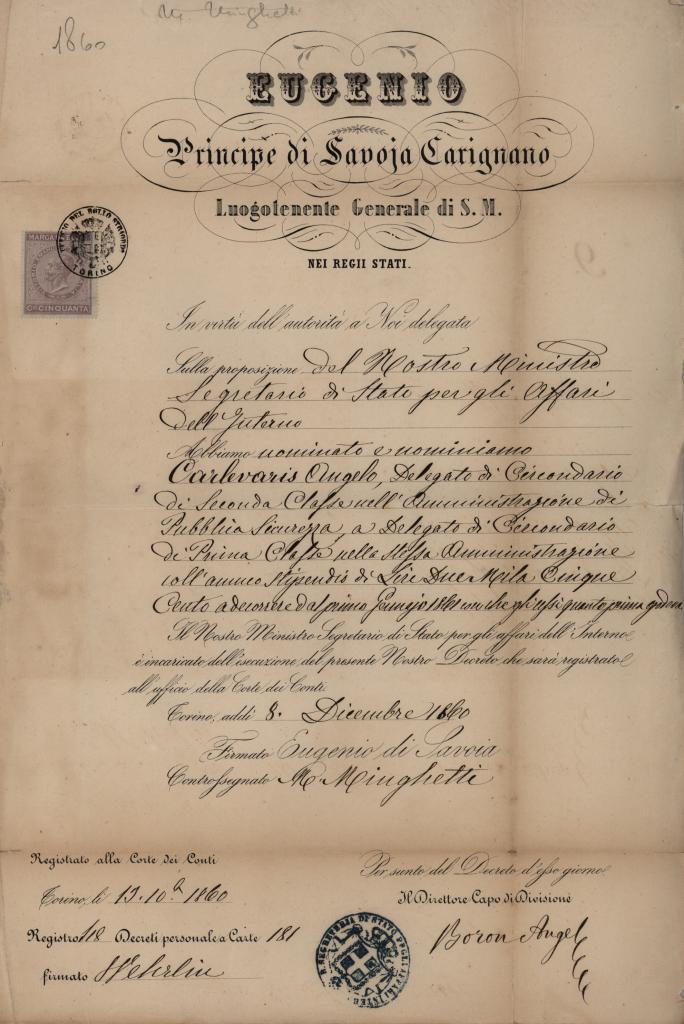 1860
M. Minghetti
EUGENIO
Principe di Savoja Carignano
Luogotenente Generale di S. M.
NEI REGII STATI.
UFFICIO DEL BOLLO STRAORD.
TORINO
MARCA
CINQUANTA
In virtù dell'autorità a Noi delegata
Sulla proposizione del Nostro Ministro
Segretario di Stato per gli Affari
dell'Interno
Abbiamo nominato e nominiamo
Carlevaris Angelo, Delegato di Circondario
di Seconda Classe nell'Amministrazione di
Pubblica Sicurezza, a Delegato di Circondario
di Prima Classe nella stessa Amministrazione
coll'annuo stipendio di Lire Due Mila Cinque
Cento a decorrere dal primo Gennajo 1861
Il Nostro Ministro Segretario di Stato per gli affari dell'Interno
è incaricato dell'esecuzione del presente Nostro Decreto che sarà registrato
all'ufficio della Corte dei Conti.
Torino, addì 8. Dicembre 1860
Firmato Eugenio di Savoia
Controssegnato M. Minghetti
Registrato alla Corte dei Conti
Torino, li 12. 10b 1860
Registro 118 Decreti personale a Carte 181
firmato Wehrlin
Per sunto del Decreto d'esso giorno
Il Direttore Capo di Divisione
Boron Angel
R. SEGRETERIA DI STATO PER GLI AFFARI INTERNI